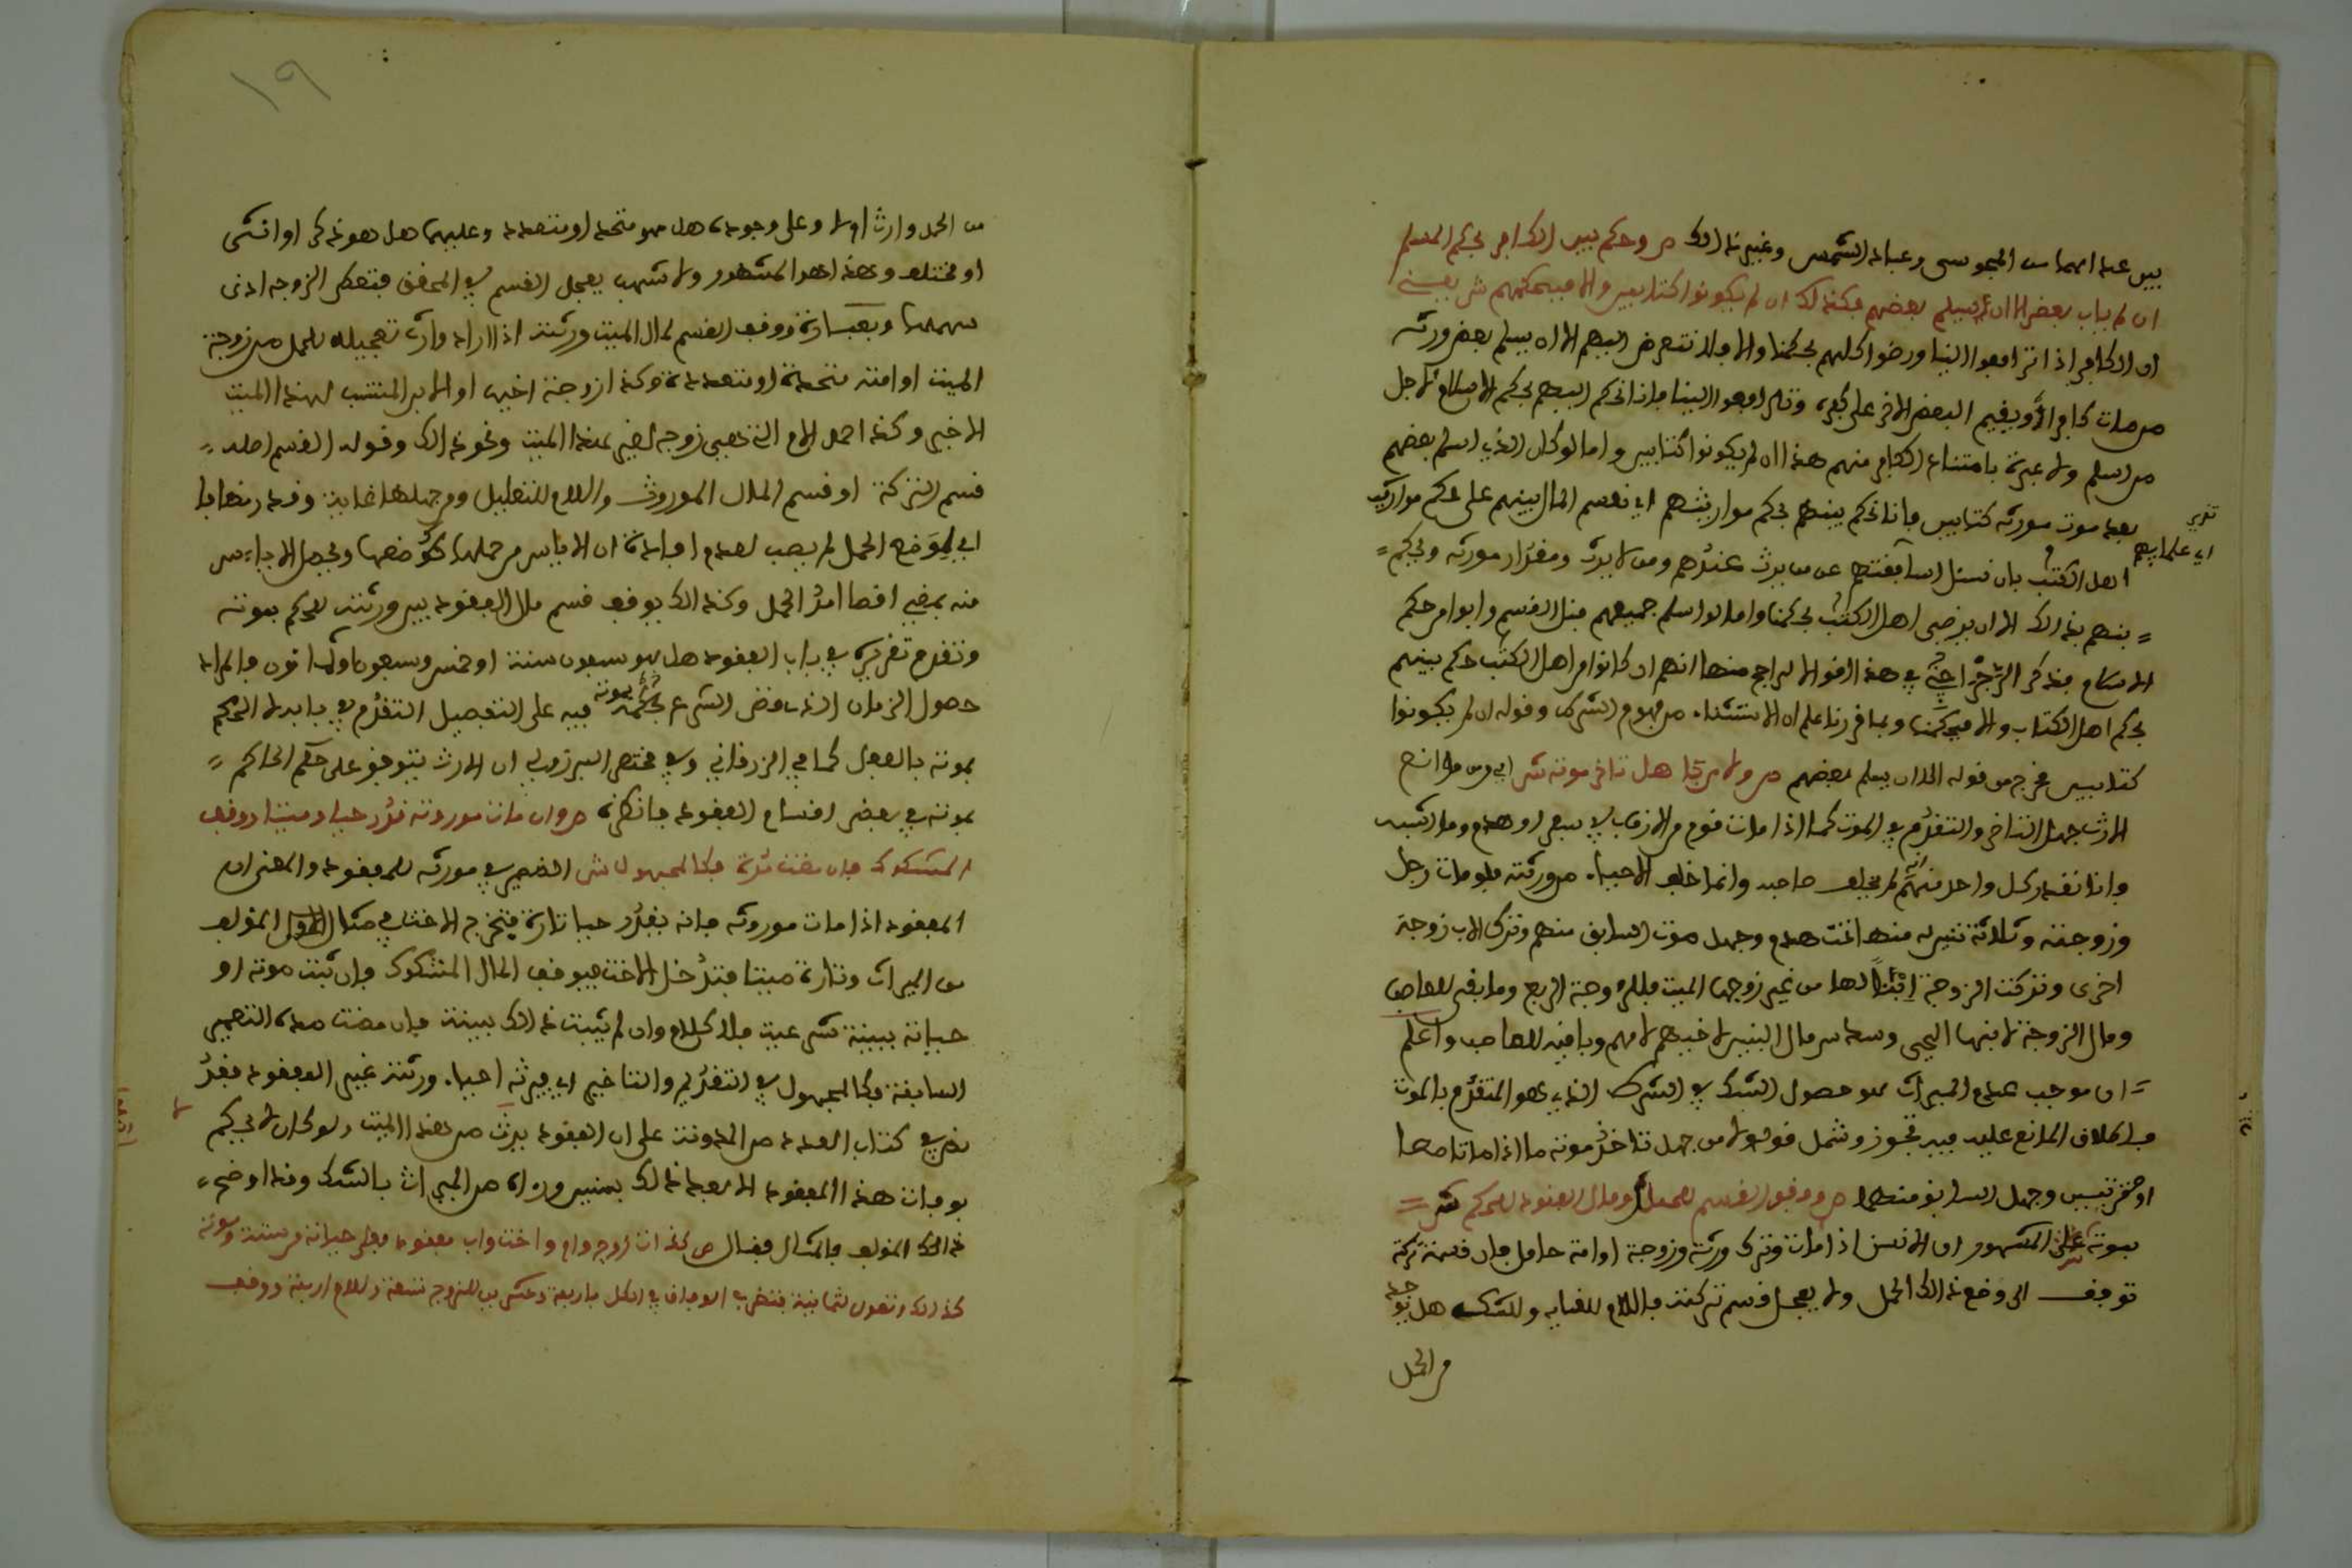 بين عبد المهاس المجوسى وعباد الشمس وغير ذالك ص وحكم بين الكافر بحكم المسلم
ان لم ياب بعض الا ان يسلم بعضهم فكذلك ان لم يكونوا كتابيين والا فبحكمهم ش يعني
ان الكافر اذا ترافعوا الينا ورضوا كلهم بحكمنا والا فلا نتعرض اليهم الا ان يسلم بعض ورثة
من مات كافرا ويقيم البعض الاخر على كفره وترافعوا الينا فاننا نحكم بينهم بحكم الاسلام لاجل
من اسلم ولا عبرة بامتناع الكافر منهم هذا ان لم يكونوا كتابيين واما لو كان الذي اسلم بعضهم
بعد موت مورثه كتابيين فاننا نحكم بينهم بحكم مواريثهم اي نقسم المال بينهم على حكم مواريث
اهل الكتب بان نسئل اساقفتهم عن من يرث عندهم ومن لا يرث ومقدار مورثه ونحكم
اي علمايهم
بينهم بذالك الا ان يرضى اهل الكتب بحكمنا واما لو اسلم جميعهم قبل القسم وابوا من حكم
الاسلام فذكر الزجراجي في هذا اقوالا الراجح منها انهم ان كانوا من اهل الكتب حكم بينهم
بحكم اهل الكتاب والا فبحكمنا وبما قررنا علم ان الاستثناء من مفهوم الشرط وقوله ان لم يكونوا
كتابيين مخرج من قوله الا ان يسلم بعضهم ص ولا من جهل تاخر موته ش اي ومن موانع
الارث جهل التاخر والتقدم في الموت كما اذا مات قوم من الاقارب في سفر او هدم وما اشبه
وانا نقدر كل واحد منهم انه لم يخلف صاحبه وانما خلف الاحياء من ورثته فلو مات رجل
وزوجته وثلاثة بنين له منها تحت هدم وجهل موت السابق منهم وترك الاب زوجة
اخرى وتركت الزوجة ابنا لها من غير زوجها الميت فللزوجة الربع وما بقي للعاصب
ومال الزوجة لابنها الحي وسدس مال البنين لاخيهم لامهم وباقيه للعاصب واعلم
ان موجب عدم الميراث هو حصول الشك في الشرط الذي هو التقدم بالموت
فاطلاق المانع عليه فيه تجوز وشمل قوله ولا من جهل تاخر موته ما اذا ماتا معا
او مترتبين وجهل السابق منهما ص ووقف القسم للحمل ومال المفقود للحكم ش
بموته على المشهور ان الانسن اذا مات وترك ورثة وزوجة او امة حامل فان قسمة تركته
توقف الى وضع ذالك الحمل ولا يعجل قسم تركته فاللام للغاية وللشك هل يوجد
من الحمل
١٩
من الحمل وارث اولا وعلى وجوده هل هو متحد او متعدد وعليهما هل هو ذكر او انثى
او مختلف وهذا هو المشهور ولاشهب يعجل القسم في المحقق فتعطى الزوجة ادنى
سهميها وبعبارة ووقف القسم لمال الميت ورثته اذا اراد وارث تعجيله للحمل من زوجة
الميت او امته متحدة او متعددة وكذا زوجة اخيه او الابن المنتسب لهذا الميت
الاخير وكذا حمل الام التي هي زوجة لغير هذا الميت ونحو ذالك وقوله القسم اصله
قسم التركة او قسم المال الموروث واللام للتعليل وجعلها غاية وقدر مضافا
اي لوضع الحمل لم يصب لعدم افادة ان الاياس من حملها كوضعها ويحصل الاياس
منه بمضي اقصا امد الحمل وكذالك يوقف قسم مال المفقود بين ورثته للحكم بموته
وتقدم تقريره في باب المفقود هل هو سبعون سنة او خمس وسبعون او ثمانون والمراد
حصول الزمان الذي قضى الشرع بحكم بموته فيه على التفصيل المتقدم في بابه لا الحكم
بموته بالفعل كما في الزرقاني وفي مختصر البرزلي ان الارث يتوقف على حكم الحاكم
بموته في بعض اقسام المفقود فانظره ص وان مات موروثه قدر حيا وميتا ووقف
المشكوك فان مضت مدة فكالمجهول ش الضمير في مورثه للمفقود والمعنى ان
المفقود اذا مات موروثه فانه يقدر حيا تارة فيخرج الاخت في مثال المؤلف
من الميراث وتارة ميتا فتدخل الاخت فيوقف المال المشكوك فان ثبت موته او
حياته ببينة شرعية فلا كلام وان لم يثبت ذالك ببينة فان مضت مدة التعمير
السابقة فكالمجهول في التقدم والتاخير اي فيرثه احياء ورثته غير المفقود فقد
نص في كتاب العدد من المدونة على ان المفقود يرث من هذا الميت ولو كان لا يحكم
بوفات هذا المفقود الا بعد ذالك بسنين وزاد من الميراث بالشك وقد اوضح
ذالك المؤلف بالمثال فقال ص فذات زوج وام واخت واب مفقود فعلى حياته من ستة وموته
كذالك وتعول لثمانية فتضرب الوفاق في الكل باربعة وعشرين للزوج تسعة وللام اربعة ووقف